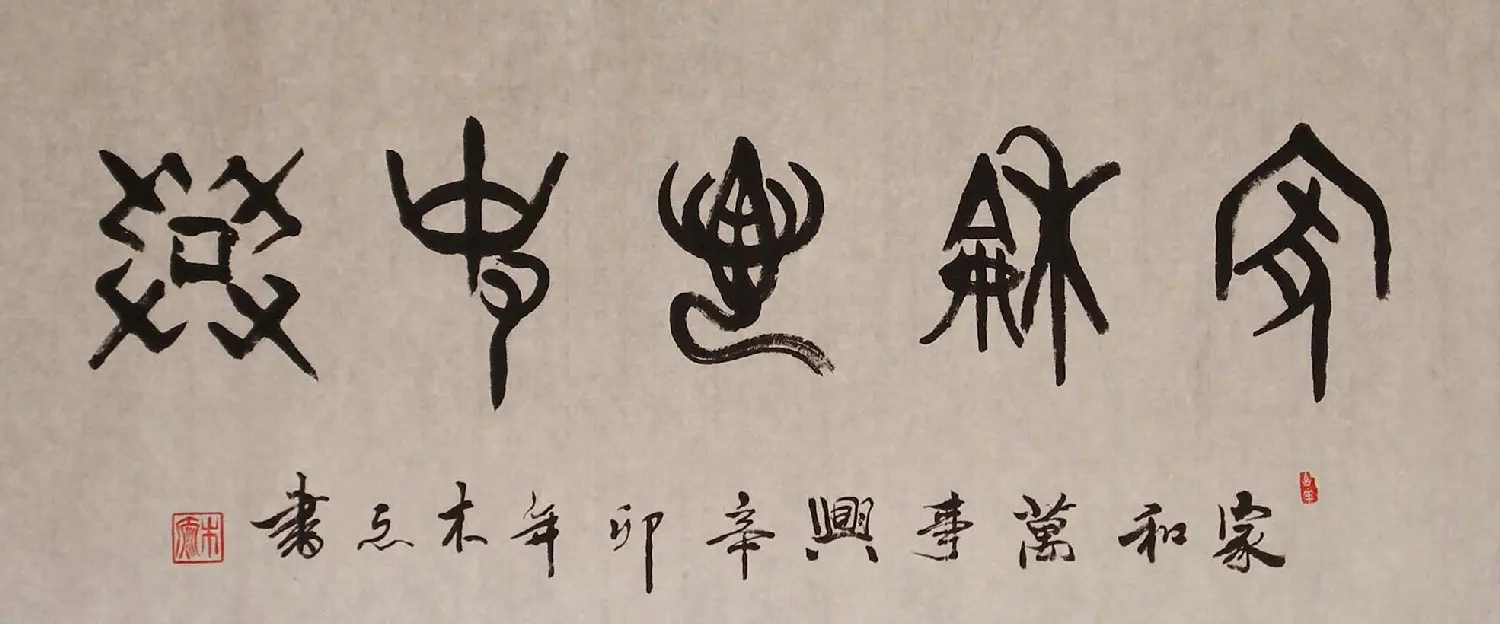 家和萬事興
家和萬事興辛卯年木石書